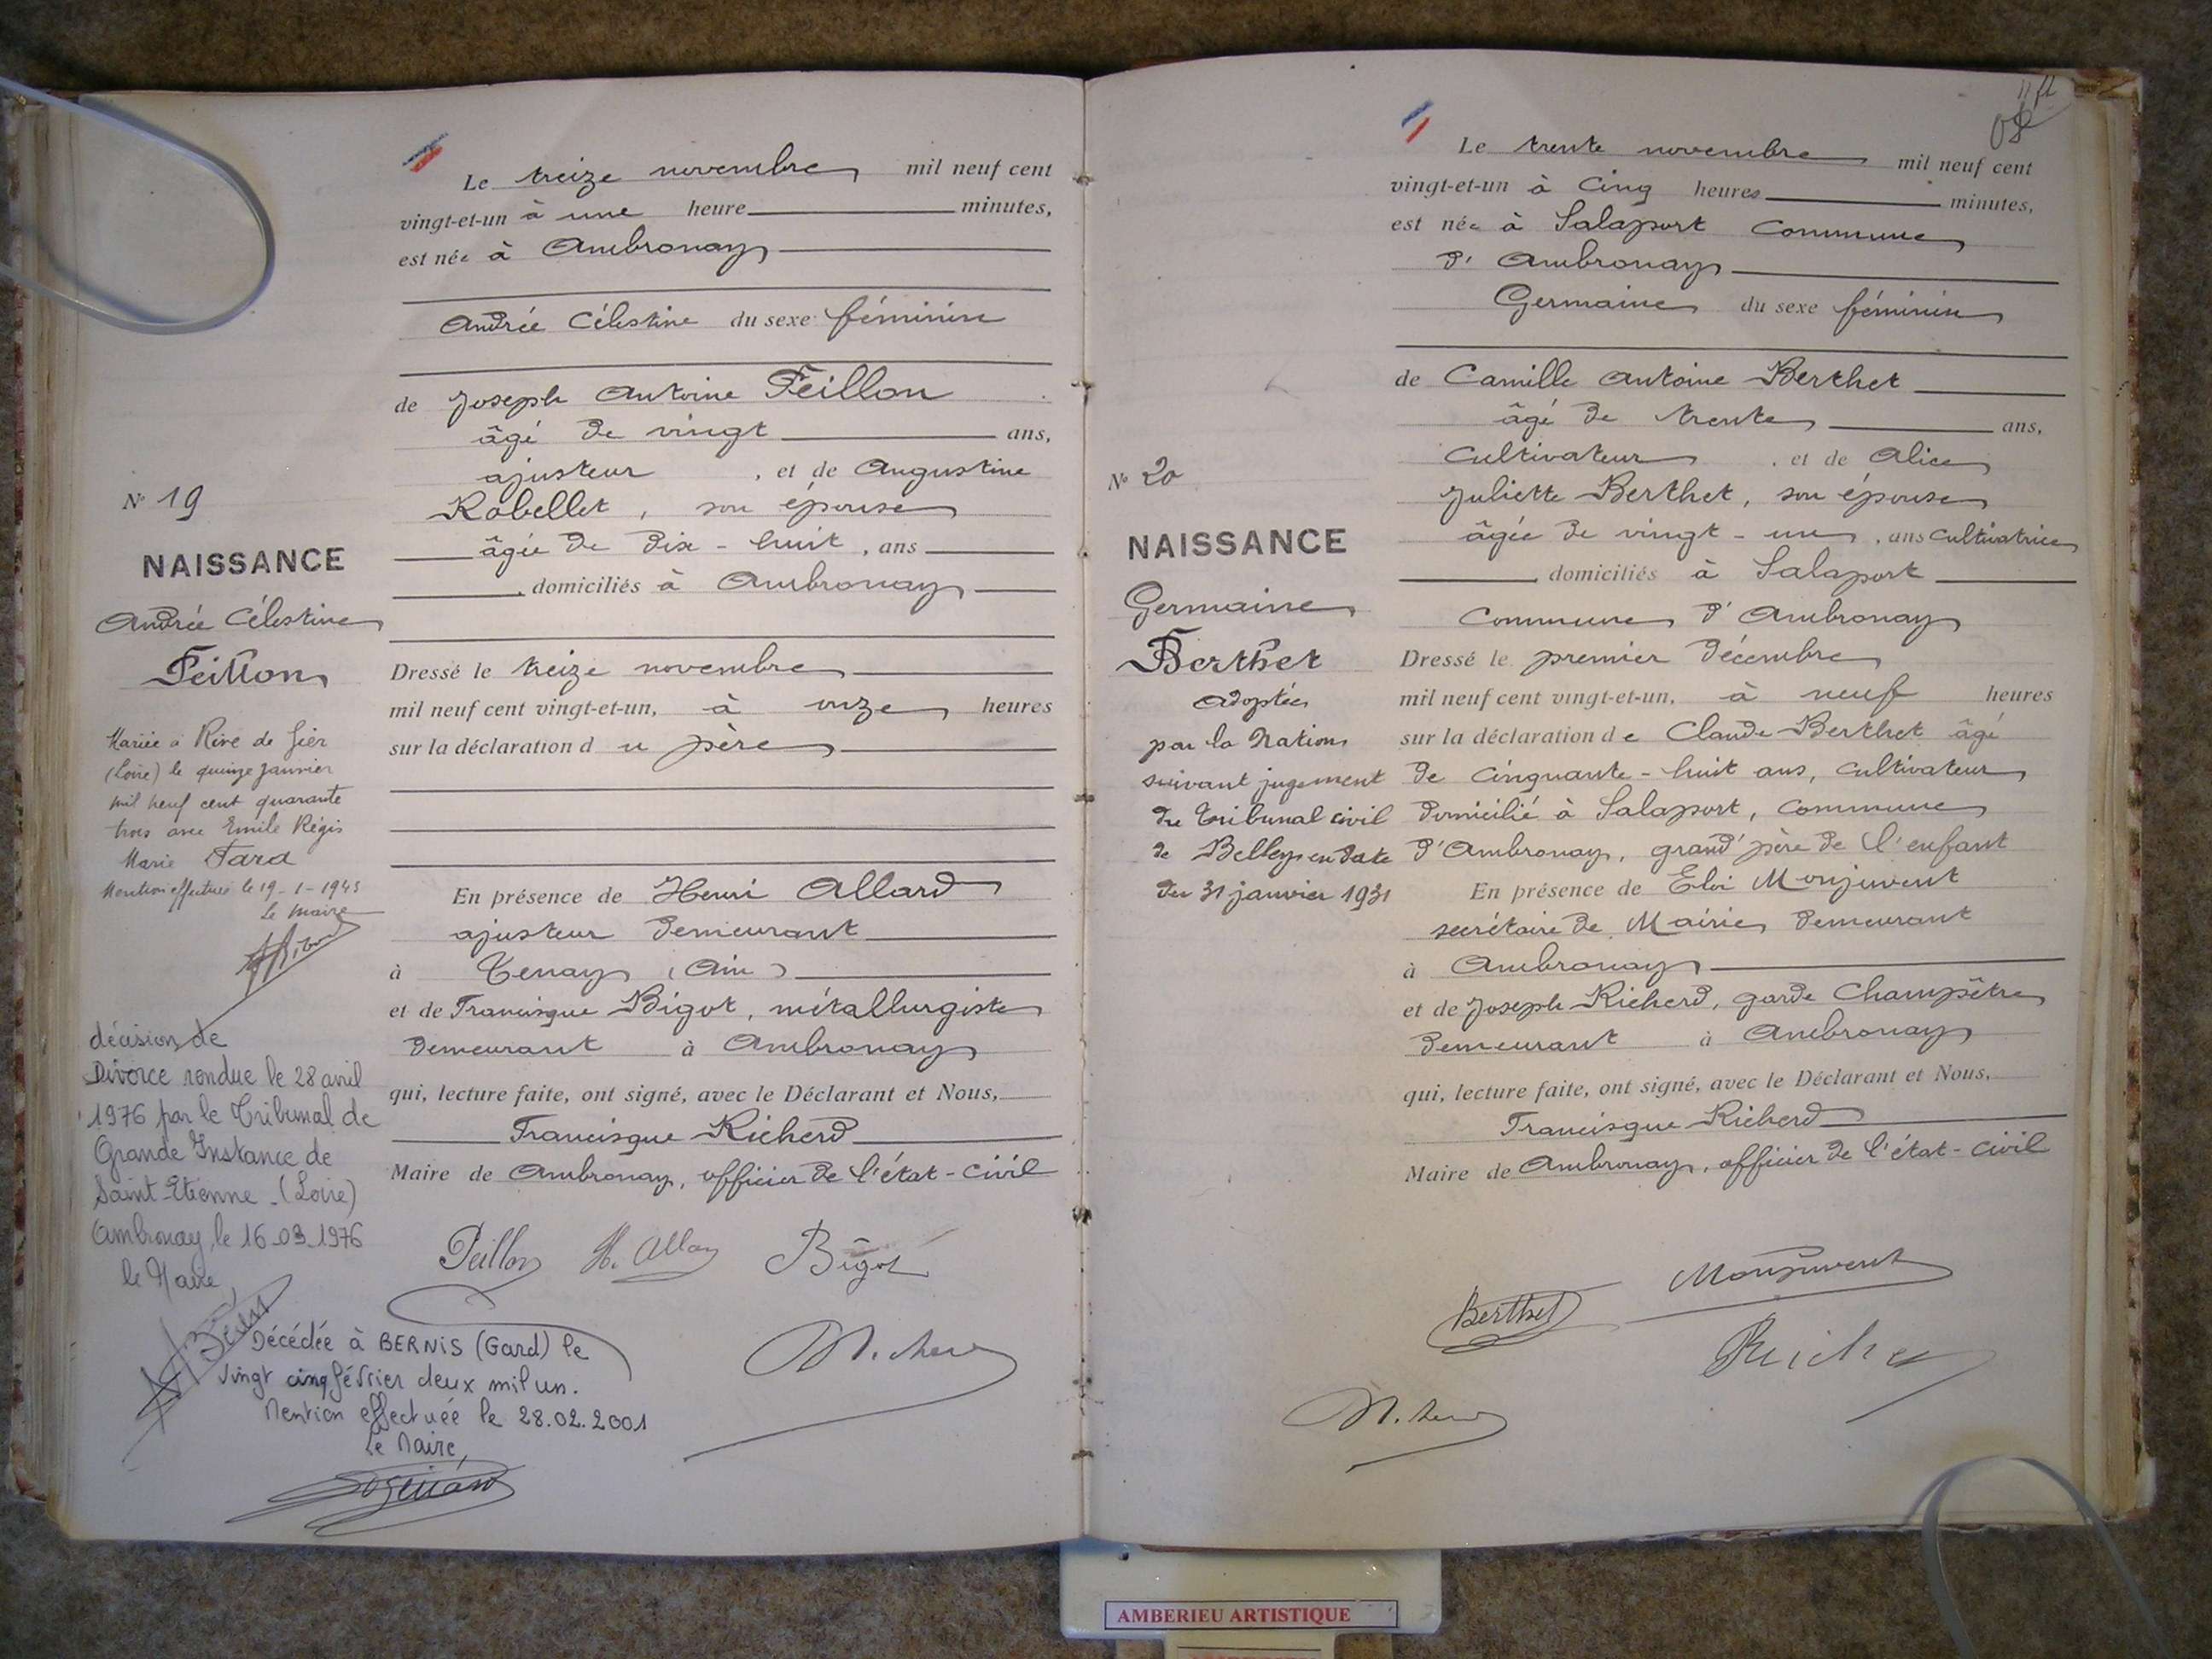 Le treize novembre mil neuf cent
vingt-et-un à une heure minutes,
est née à Ambronay
Andrée Célestine du sexe féminin
de Joseph Antoine Peillon
âgé de vingt ans,
ajusteur , et de Augustine
Robellet, son épouse
âgée de dix-huit, ans
, domiciliés à Ambronay
Dressé le treize novembre
mil neuf cent vingt-et-un, à onze heures
sur la déclaration du père
En présence de Henri Allard
ajusteur demeurant
à Tenay (Ain)
et de Francisque Bigot, métallurgiste
demeurant à Ambronay
qui, lecture faite, ont signé, avec le Déclarant et Nous,
Francisque Richerd
Maire de Ambronay, officier de l'état-civil
Peillon H. Allar Bigot
N° 19
NAISSANCE
Andrée Célestine
Peillon
Mariée à Rive de Gier
(Loire) le quinze Janvier
mil neuf cent quarante
trois avec Emile Régis
Marie Fara
Mention effectuée le 19-1-1943
Le Maire
décision de
Divorce rendue le 28 avril
1976 par le Tribunal de
Grande Instance de
Saint-Etienne - (Loire)
Ambronay, le 16-03-1976
le Maire,
Décédée à BERNIS (Gard) le
vingt cinq février deux mil un.
Mention effectuée le 28.02.2001
Le Maire,
Le trente novembre mil neuf cent
vingt-et-un à cinq heures minutes,
est née à Salaport Commune
d'Ambronay
Germaine du sexe féminin
de Camille Antoine Berthet
âgé de trente ans,
Cultivateur , et de Alice
Juliette Berthet, son épouse
âgée de vingt-un, ans Cultivatrice
, domiciliés à Salaport
Commune d'Ambronay
Dressé le premier décembre
mil neuf cent vingt-et-un, à neuf heures
sur la déclaration de Claude Berthet âgé
de cinquante-huit ans, cultivateur
domicilié à Salaport, commune
d'Ambronay, grand'père de l'enfant
En présence de Eloi Monjuvent
secrétaire de Mairie demeurant
à Ambronay
et de Joseph Richerd, garde Champêtre
demeurant à Ambronay
qui, lecture faite, ont signé, avec le Déclarant et Nous,
Francisque Richerd
Maire de Ambronay, officier de l'état-civil
Berthet Monjuvent
N° 20
NAISSANCE
Germaine
Berthet
Adoptée
par la Nation
suivant jugement
du Tribunal civil
de Belley en date
du 31 janvier 1931
AMBERIEU ARTISTIQUE